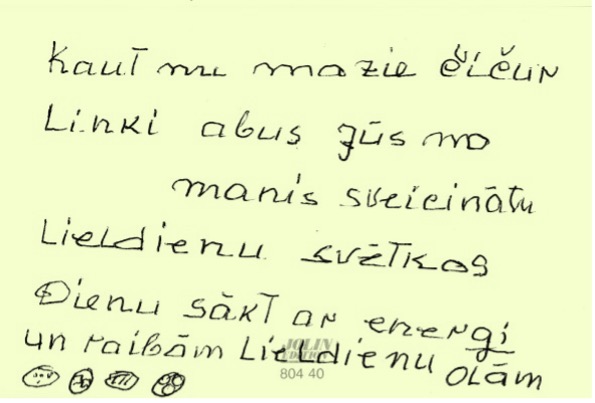 Kaut nu mazie čičur
Linki abus jūs no
manis sveicinātu
Lieldienu svētkos
Dienu sākt ar energi
un raibām Lieldienu olām
JOLIN
804 40